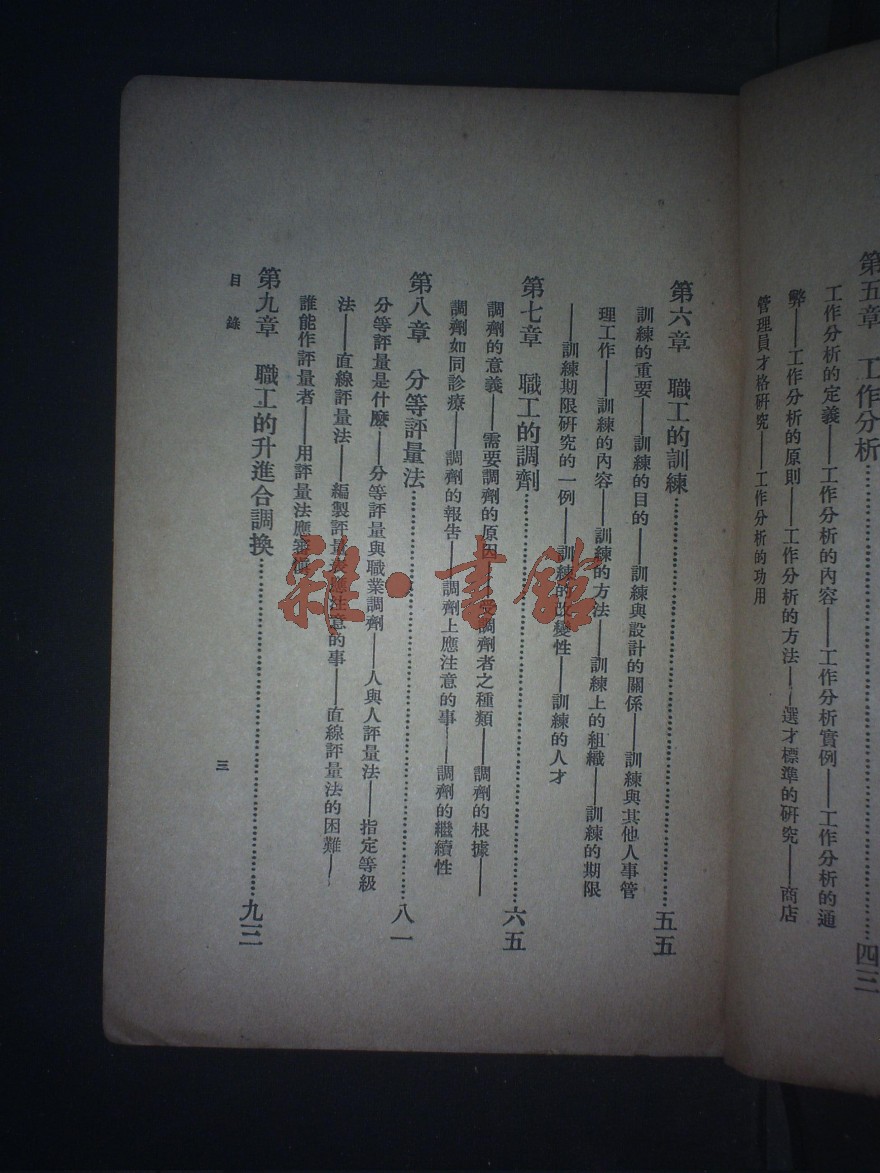 第五章　工作分析…………四三
工作分析的定義——工作分析的內容——工作分析實例——工作分析的通
弊——工作分析的原則——工作分析的方法——選才標準的研究——商店
管理員才格研究——工作分析的功用
第六章　職工的訓練…………五五
訓練的重要——訓練的目的——訓練與設計的關係——訓練與其他人事管
理工作——訓練的內容——訓練的方法——訓練上的組織——訓練的期限
——訓練期限研究的一例——訓練的改變性——訓練的人才
第七章　職工的調劑…………六五
調劑的意義——需要調劑的原因——受調劑者之種類——調劑的根據——
調劑如同診療——調劑的報告——調劑上應注意的事——調劑的繼續性
第八章　分等評量法…………八一
分等評量是什麼——分等評量與職業調劑——人與人評量法——指定等級
法——直線評量法——編製評量表應注意的事——直線評量法的困難——
誰能作評量者——用評量法應審慎
第九章　職工的升進合調換…………九三
目錄
三
雜·書館